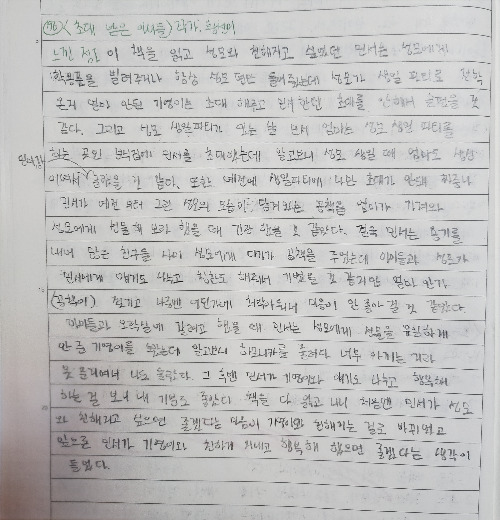 (56) < 초대 받은 아이들> 작가: 황선미
느낀 점: 이 책을 읽고 성모와 친해지고 싶었던 민서는 성모에게
학용품을 빌려주거나 항상 성모 편만 들어줬는데 성모가 생일 파티로 전학
온지 얼마 안된 기영이는 초대 해주고 민서한텐 초대를 안해서 슬펐을 것
같다. 그리고 성모 생일파티가 있는 날 민서 엄마는 성모 생일 파티를
하는 곳인 분식집에 민서를 초대했는데 알고보니 성모 생일 때 엄마도 생일
이여서 놀랐을 것 같다. 또한 예전에 생일파티에 나만 초대가 안돼
민서가 예전 부터 그린 성모의 모습이 담겨있는 공책을 엄마가 가져와
성모에게 선물 해 보라 했을 때 긴장 했을 것 같았다. 결국 민서는 용기를
내어 많은 친구들 사이 성모에게 다가가 공책을 주었는데 아이들과 성모가
민서에게 관심도 없고
(공책이) 찢기고 나중엔 여인기에 처박아둬서 마음이 안 좋아 질 것 같았다.
아이들과 오락실에 갈려고 했을 때 민서는 성모에게 선물을 유일하게
안 준 기영이를 봤는데 알고보니 하모니카를 줄려다 너무 아끼는 거라
못 줄거여서 나도 놀랐다. 그 후엔 민서가 기영이와 얘기도 나누고 행복해
하는 걸 보니 내 기분도 좋았다. 책을 다 읽고 나니 처음엔 민서가 성모
와 친해지고 싶으면 좋겠다는 마음이 기영이와 친해지는 걸로 바뀌었고
앞으론 민서가 기영이와 친하게 지내고 행복해 했으면 좋겠다는 생각이
들었다.